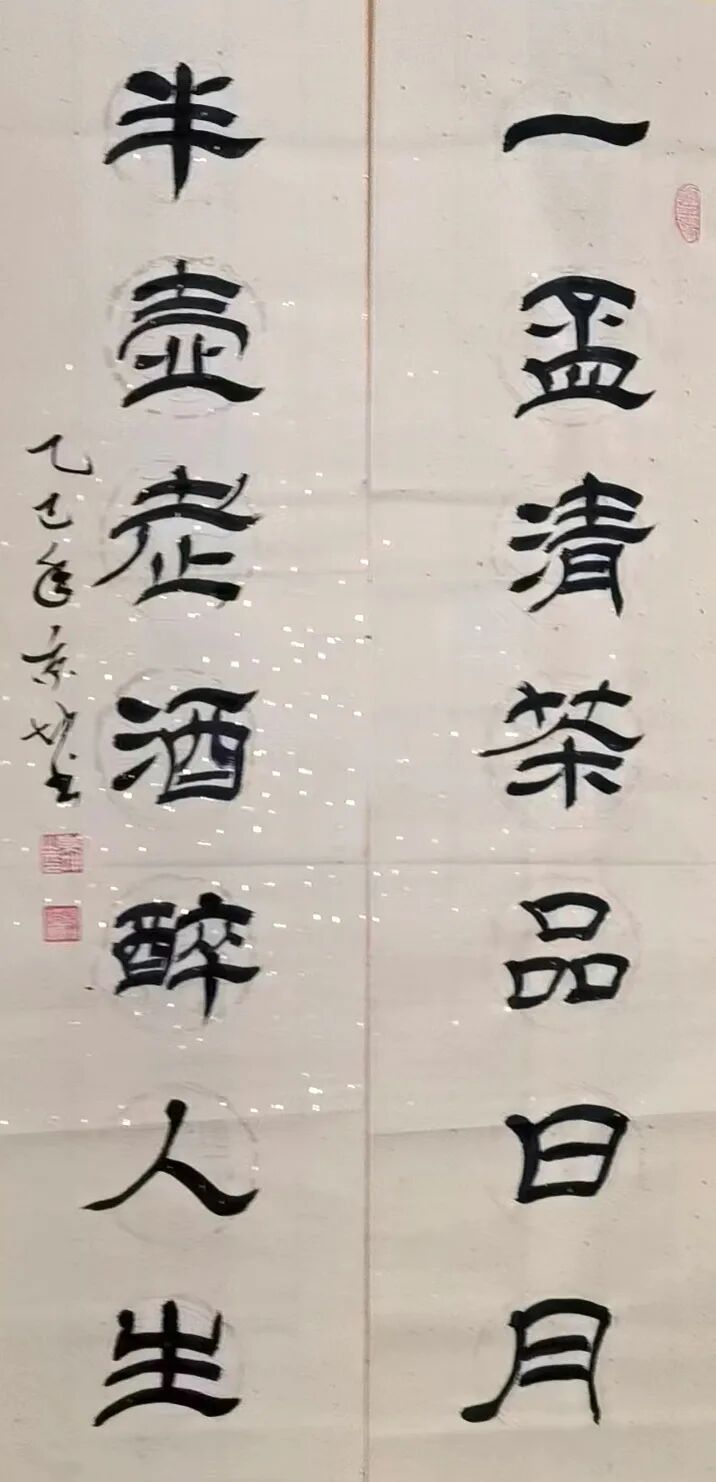 一盃清茶品日月
半壶老酒醉人生
乙巳年 书